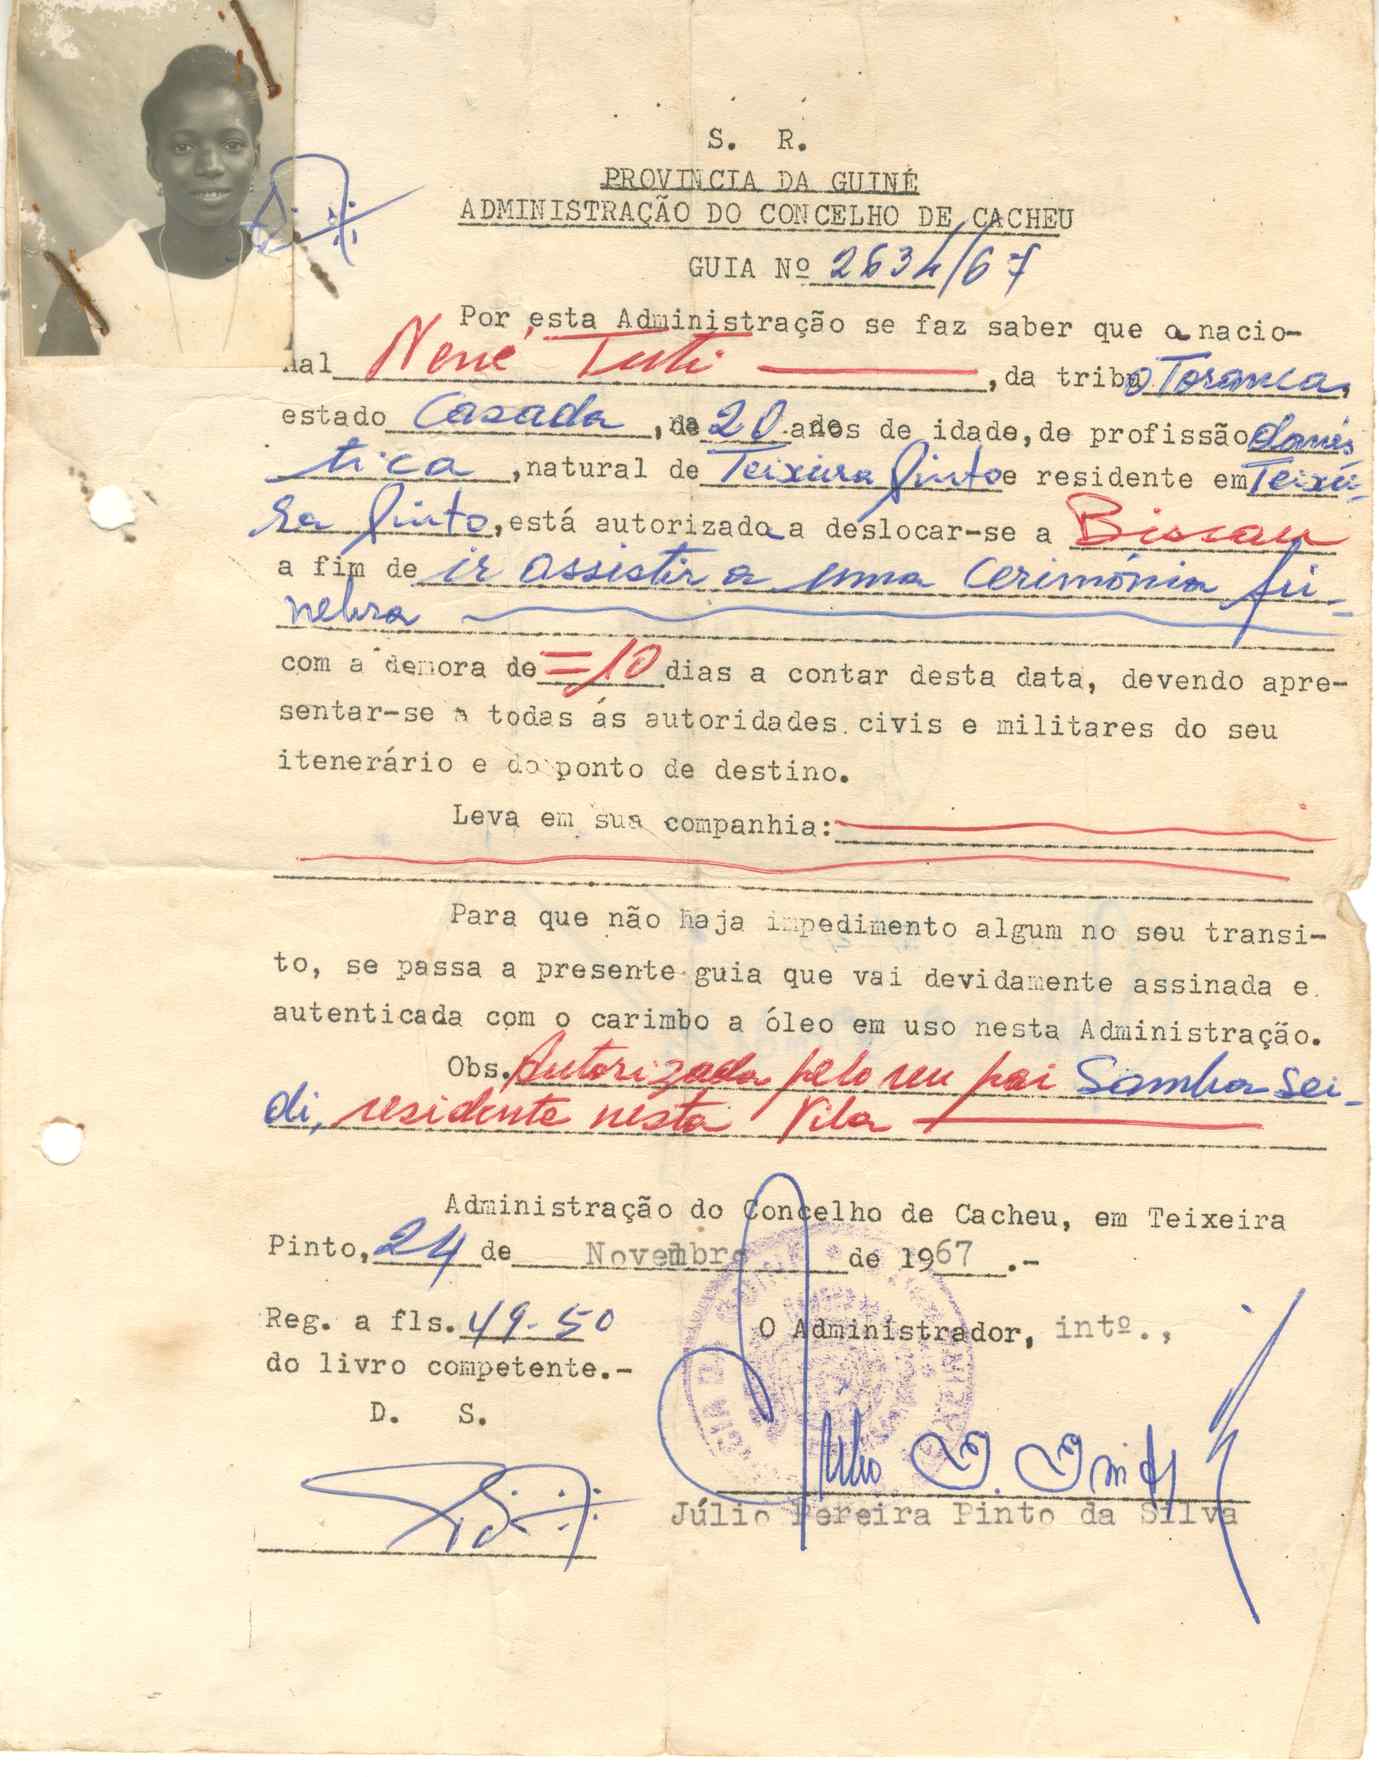 S. R.
PROVINCIA DA GUINÉ
ADMINISTRAÇÃO DO CONCELHO DE CACHEU
GUIA Nº 2634/67
Por esta Administração se faz saber que a nacio-
nal Nené Tuti, da tribu Toranca,
estado Casada, de 20 anos de idade, de profissão domés
tica, natural de Teixeira Pinto e residente em Teixei-
ra Pinto, está autorizada a deslocar-se a Bissau
a fim de ir assistir a uma cerimónia fú-
nebra
com a demora de =10 dias a contar desta data, devendo apre-
sentar-se a todas ás autoridades civis e militares do seu
itenerário e do ponto de destino.
Leva em sua companhia:
Para que não haja impedimento algum no seu transi-
to, se passa a presente guia que vai devidamente assinada e
autenticada com o carimbo a óleo em uso nesta Administração.
Obs. Autorizada pelo seu pai Samba Sei-
di, residente nesta Vila
Administração do Concelho de Cacheu, em Teixeira
Pinto, 24 de Novembro de 1967.-
Reg. a fls. 49-50
do livro competente.-
O Administrador, intº.,
D. S.
Júlio Pereira Pinto da Silva